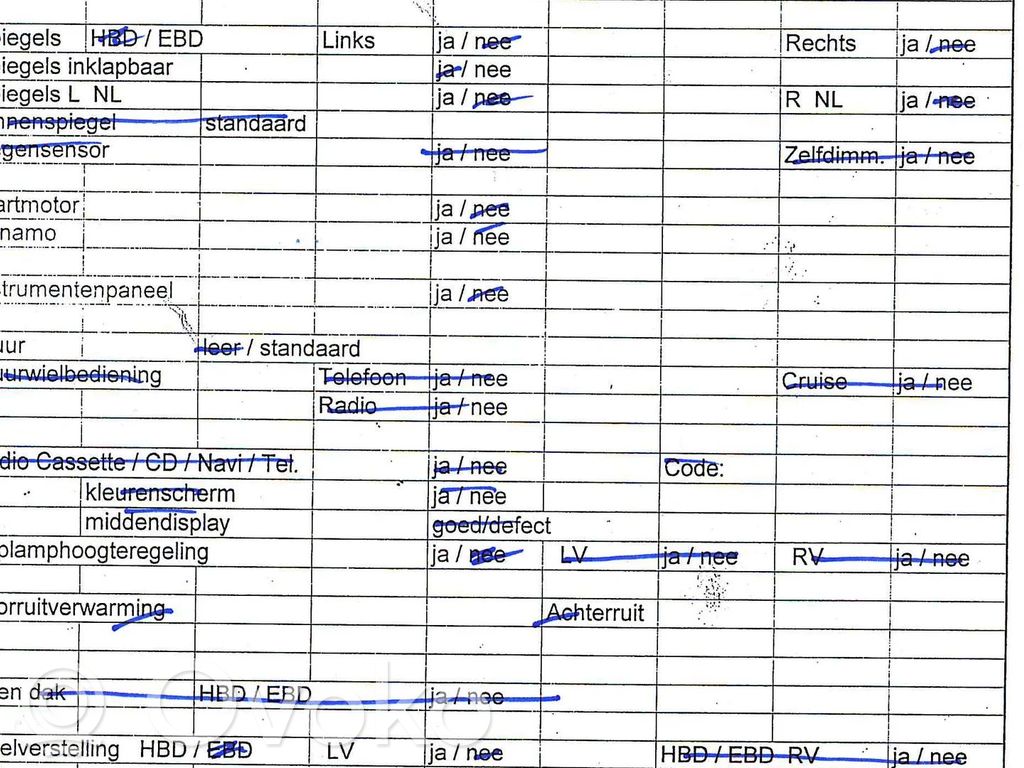 iegels HBD / EBD Links ja / nee Rechts ja / nee
iegels inklapbaar ja / nee
iegels L NL ja / nee R NL ja / nee
nnenspiegel standaard
gensensor ja / nee Zelfdimm. ja / nee
artmotor ja / nee
namo ja / nee
strumentenpaneel ja / nee
uur leer / standaard
uurwielbediening Telefoon ja / nee Cruise ja / nee
Radio ja / nee
dio Cassette / CD / Navi / Tel. ja / nee Code:
kleurenscherm ja / nee
middendisplay goed/defect
plamphoogteregeling ja / nee LV ja / nee RV ja / nee
orruitverwarming Achterruit
en dak HBD / EBD ja / nee
© Ovoko
elverstelling HBD / EBD LV ja / nee HBD / EBD RV ja / nee